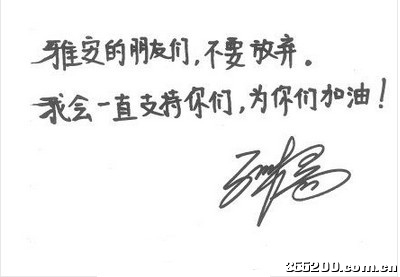 雅安的朋友们，不要放弃。
我会一直支持你们，为你们加油！
366200.com.cn